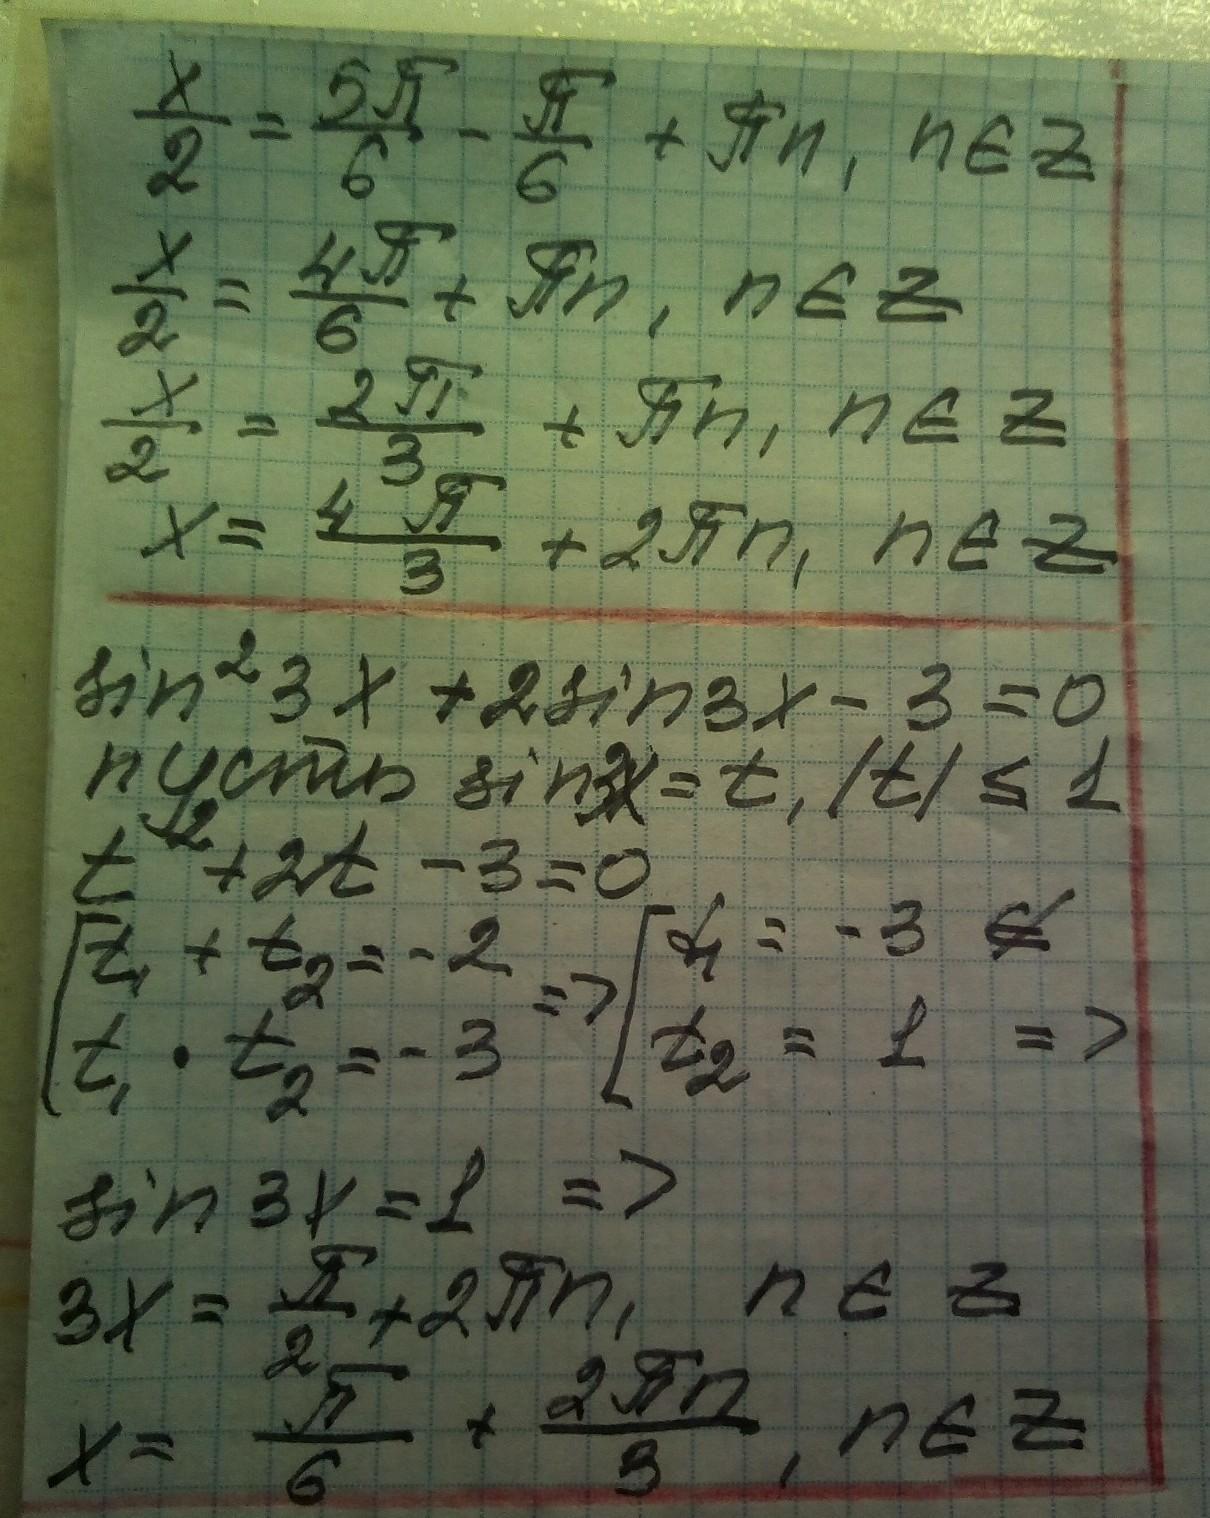 x/2 = 5π/6 - π/6 + πn, n∈Z
x/2 = 4π/6 + πn, n∈Z
x/2 = 2π/3 + πn, n∈Z
x = 4π/3 + 2πn, n∈Z
sin²3x + 2sin3x - 3 = 0
пусть sin3x = t, |t| ≤ 1
t² + 2t - 3 = 0
[t₁ + t₂ = -2 => [t₁ = -3 ∉
t₁ · t₂ = -3 t₂ = 1 =>
sin 3x = 1 =>
3x = π/2 + 2πn, n∈Z
x = π/6 + 2πn/3, n∈Z